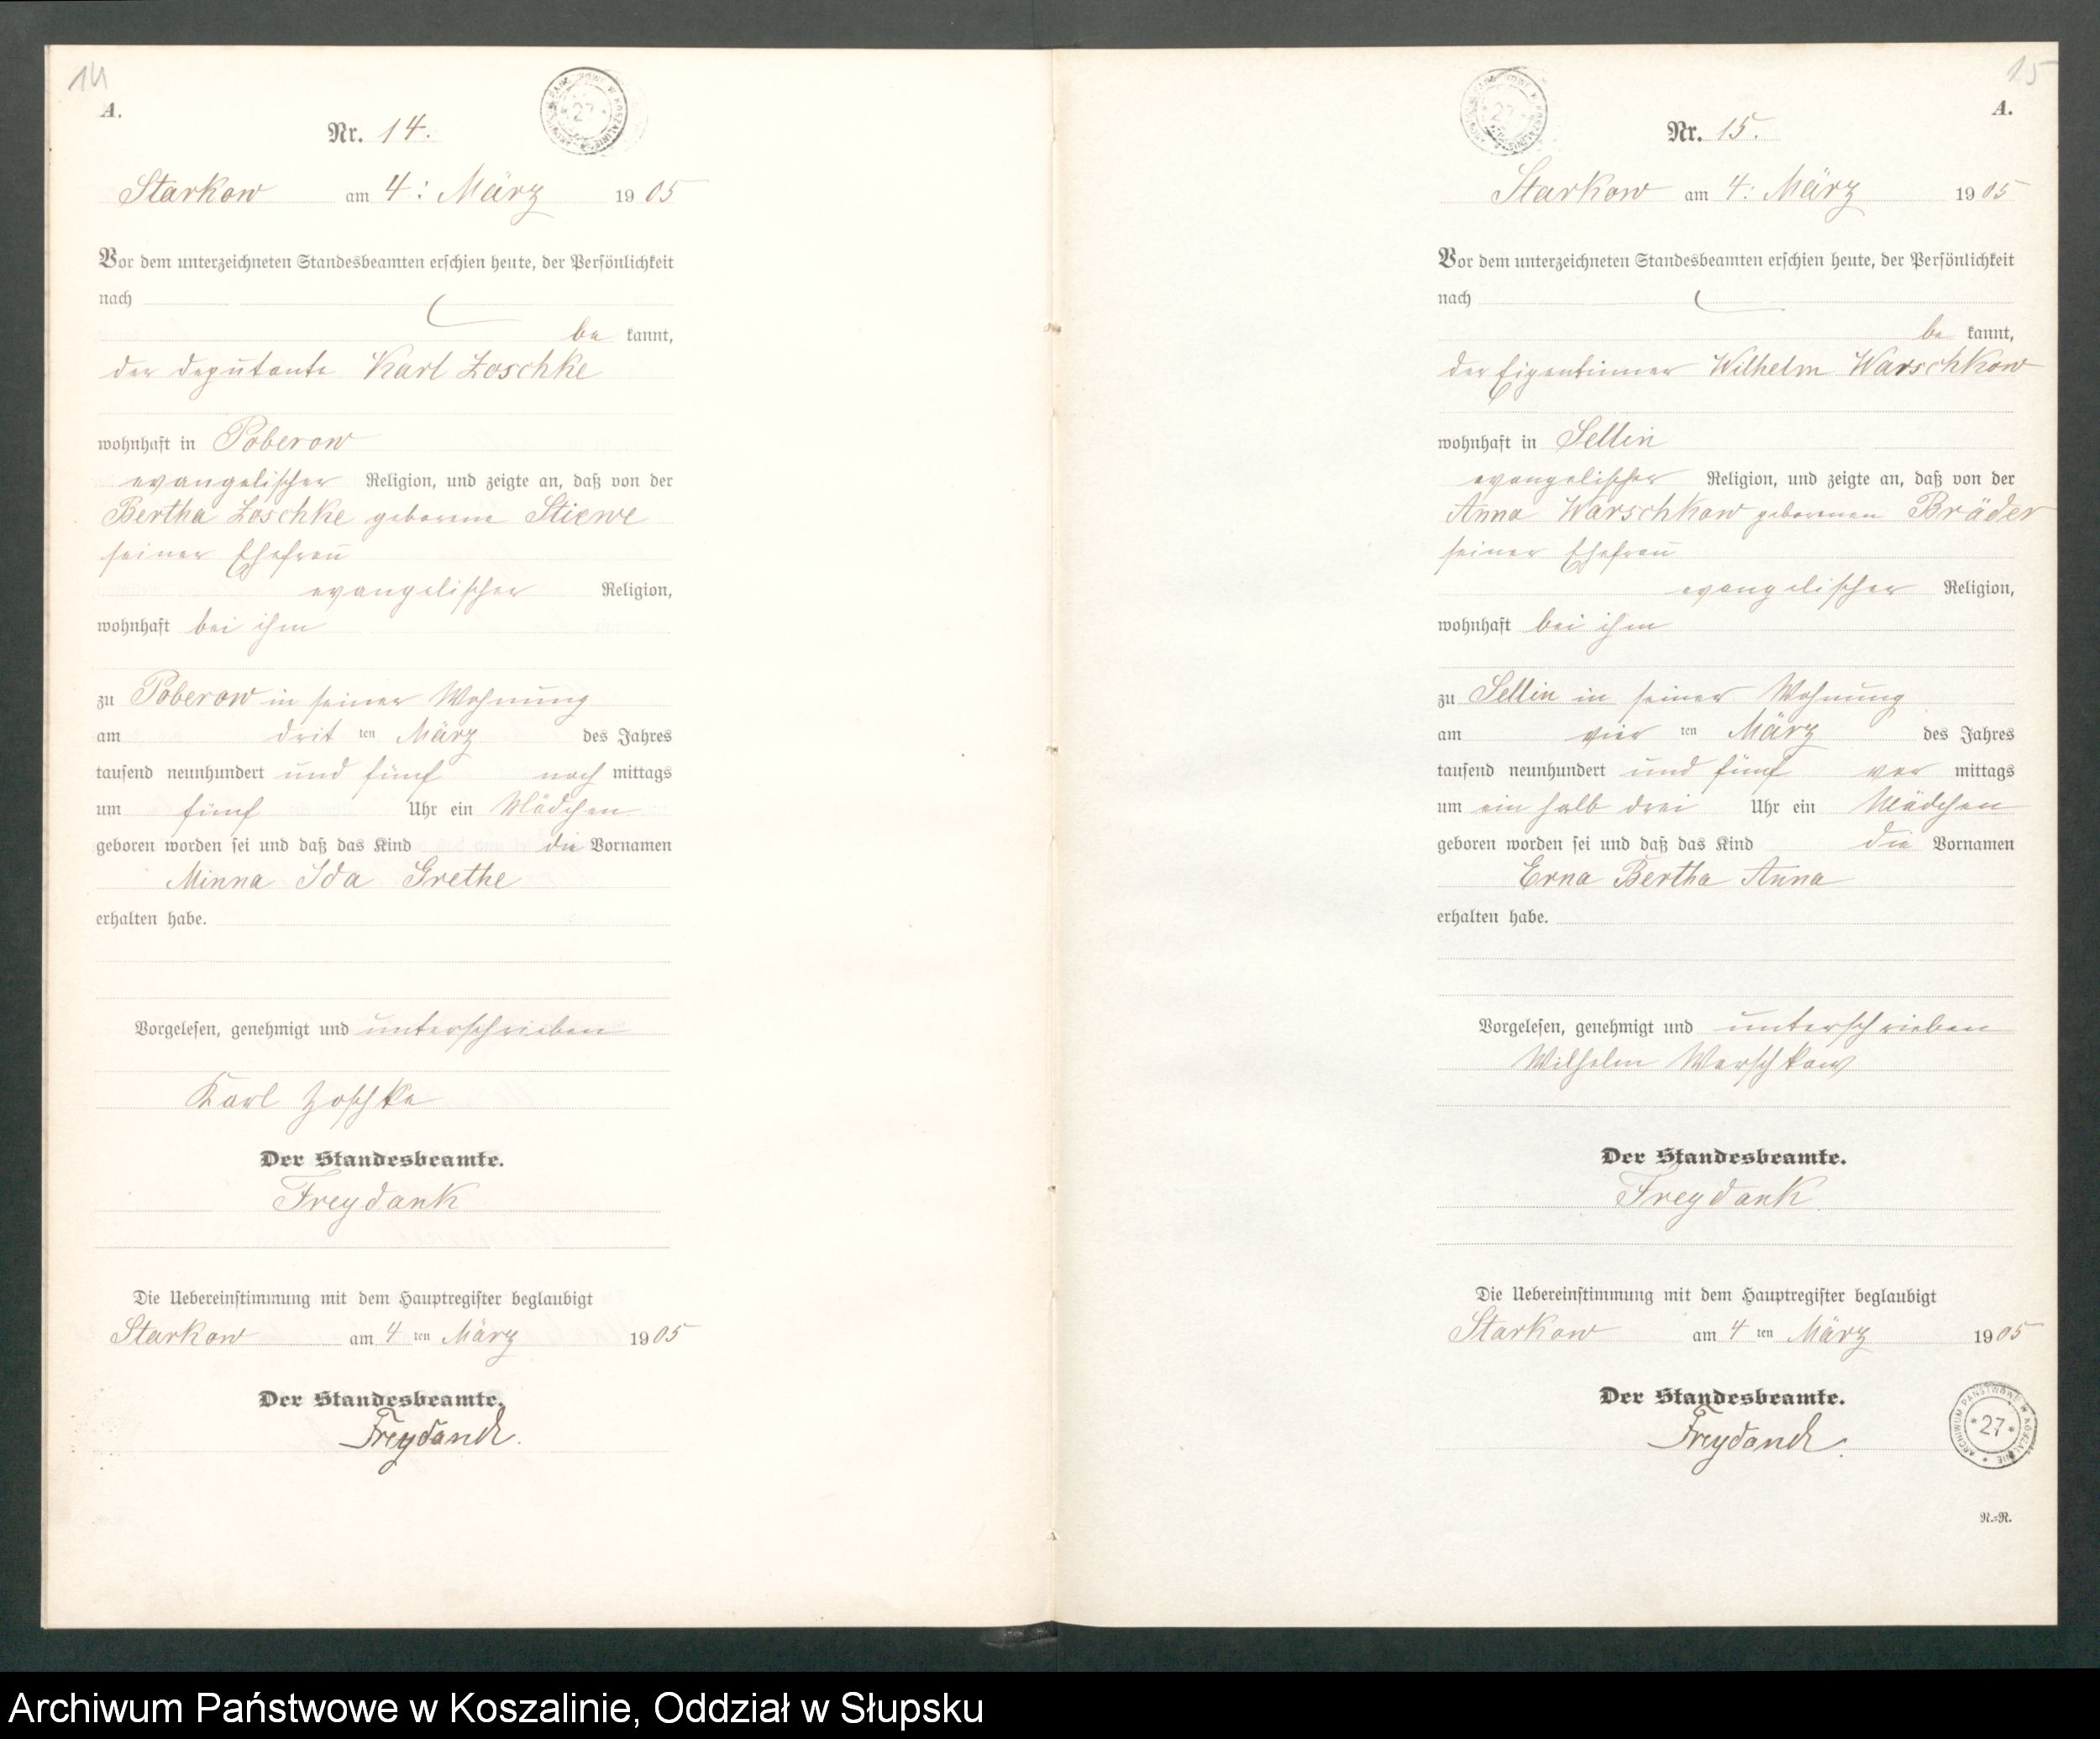 14
A.
Nr. 14.
Starkow am 4: März 1905
Vor dem unterzeichneten Standesbeamten erschien heute, der Persönlichkeit
nach
be kannt,
der Deputante Karl Zoschke
wohnhaft in Poberow
evangelischer Religion, und zeigte an, daß von der
Bertha Zoschke geborene Stiewe
seiner Ehefrau
evangelischer Religion,
wohnhaft bei ihm
zu Poberow in seiner Wohnung
am dritten März des Jahres
tausend neunhundert und fünf nach mittags
um fünf Uhr ein Mädchen
geboren worden sei und daß das Kind die Vornamen
Minna Ida Grethe
erhalten habe.
Vorgelesen, genehmigt und unterschrieben
Karl Zoschke
Der Standesbeamte.
Freydank
Die Uebereinstimmung mit dem Hauptregister beglaubigt
Starkow am 4 ten März 1905
Der Standesbeamte.
Freydank.
15
A.
Nr. 15.
Starkow am 4: März 1905
Vor dem unterzeichneten Standesbeamten erschien heute, der Persönlichkeit
nach
be kannt,
der Eigentümer Wilhelm Warschkow
wohnhaft in Sellin
evangelischer Religion, und zeigte an, daß von der
Anna Warschkow geborenen Bräder
seiner Ehefrau
evangelischer Religion,
wohnhaft bei ihm
zu Sellin in seiner Wohnung
am vier ten März des Jahres
tausend neunhundert und fünf vor mittags
um ein halb drei Uhr ein Mädchen
geboren worden sei und daß das Kind die Vornamen
Erna Bertha Anna
erhalten habe.
Vorgelesen, genehmigt und unterschrieben
Wilhelm Warschkow
Der Standesbeamte.
Freydank.
Die Uebereinstimmung mit dem Hauptregister beglaubigt
Starkow am 4 ten März 1905
Der Standesbeamte.
Freydank.
ARCHIWUM PAŃSTWOWE W KOSZALINIE
* 27 *
R.=R.
Archiwum Państwowe w Koszalinie, Oddział w Słupsku